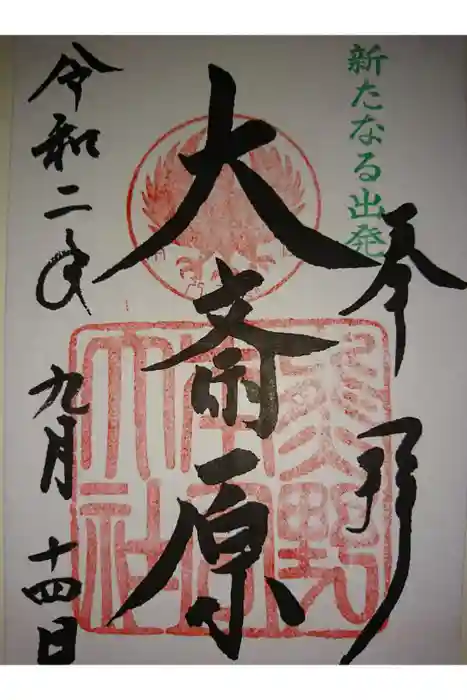 新たなる出発
奉拝
大斎原
熊野本宮大社
令和二年
九月
十四日